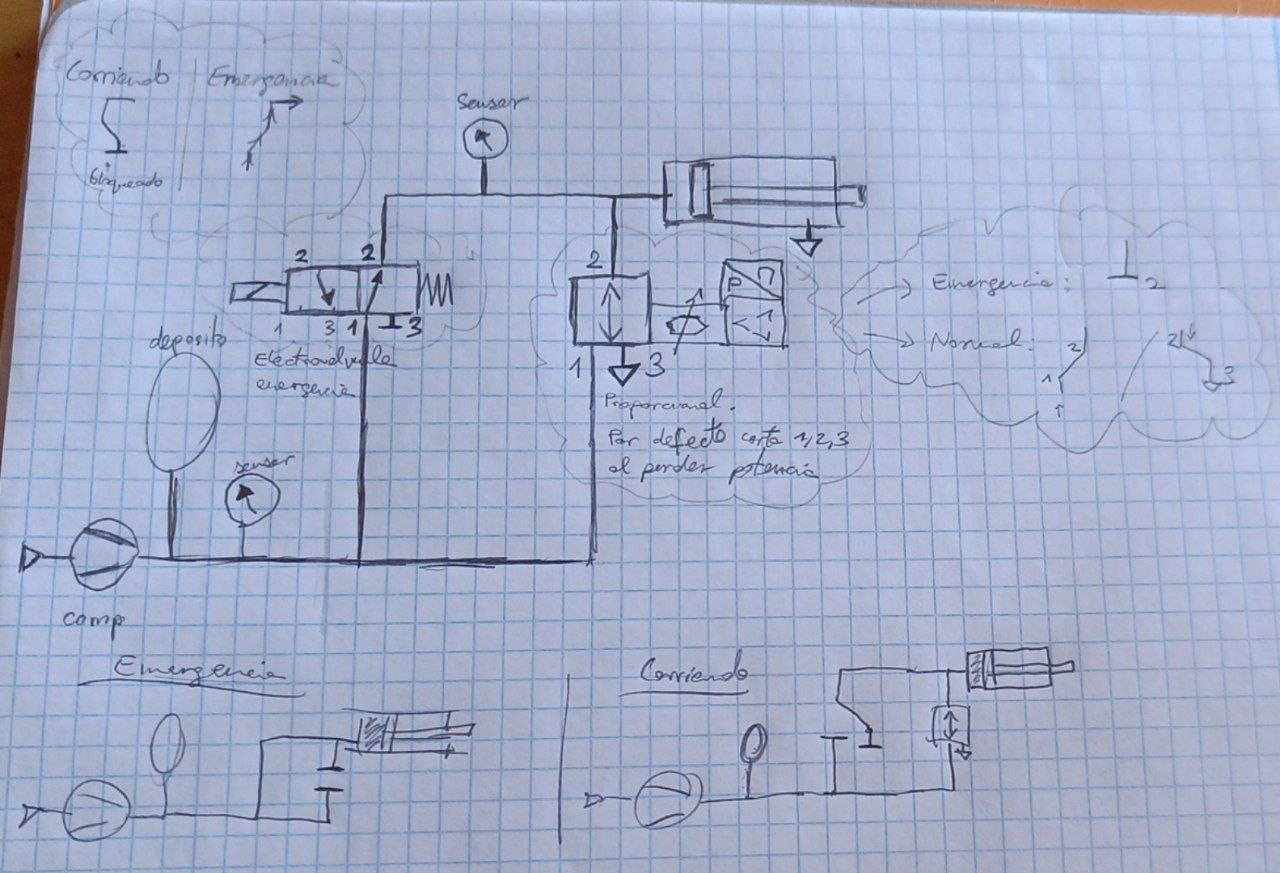 Corriendo
Emergencia
bloqueado
Sensor
2 2
1 3 1 3
Electrovalvula
emergencia
deposito
sensor
comp
2
P
1 3
Proporcional.
Por defecto corta 1,2,3
al perder potencia
Emergencia: 2
Normal: 2 1 2 3
Emergencia
Corriendo